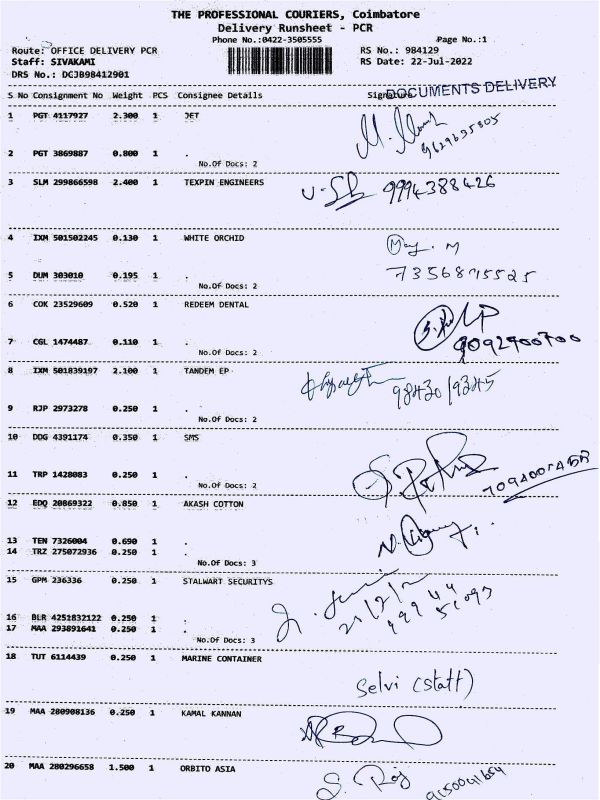 THE PROFESSIONAL COURIERS, Coimbatore
Delivery Runsheet - PCR
Phone No.:0422-3505555 Page No.:1
Route: OFFICE DELIVERY PCR RS No.: 984129
Staff: SIVAKAMI RS Date: 22-Jul-2022
DRS No.: DCJB98412901
DOCUMENTS DELIVERY
S No Consignment No Weight PCS Consignee Details
1 PGT 4117927 2.300 1 JET
2 PGT 3869887 0.800 1 .
No.Of Docs: 2
3 SLM 299866598 2.400 1 TEXPIN ENGINEERS
9994388426
4 IXM 501502245 0.130 1 WHITE ORCHID
5 DUM 303010 0.195 1 .
No.Of Docs: 2
6 COK 23529609 0.520 1 REDEEM DENTAL
7 CGL 1474487 0.110 1 .
9092900700
No.Of Docs: 2
8 IXM 501839197 2.100 1 TANDEM EP
9843019345
9 RJP 2973278 0.250 1 .
No.Of Docs: 2
10 DDG 4391174 0.350 1 SMS
11 TRP 1428083 0.250 1 .
No.Of Docs: 2
12 EDQ 20869322 0.850 1 AKASH COTTON
13 TEN 7326004 0.690 1 .
14 TRZ 275072936 0.250 1 .
No.Of Docs: 3
15 GPM 236336 0.250 1 STALWART SECURITYS
16 BLR 4251832122 0.250 1 .
17 MAA 293891641 0.250 1 .
No.Of Docs: 3
18 TUT 6114439 0.250 1 MARINE CONTAINER
Selvi (Staff)
19 MAA 280908136 0.250 1 KAMAL KANNAN
20 MAA 280296658 1.500 1 ORBITO ASIA
S. Roj